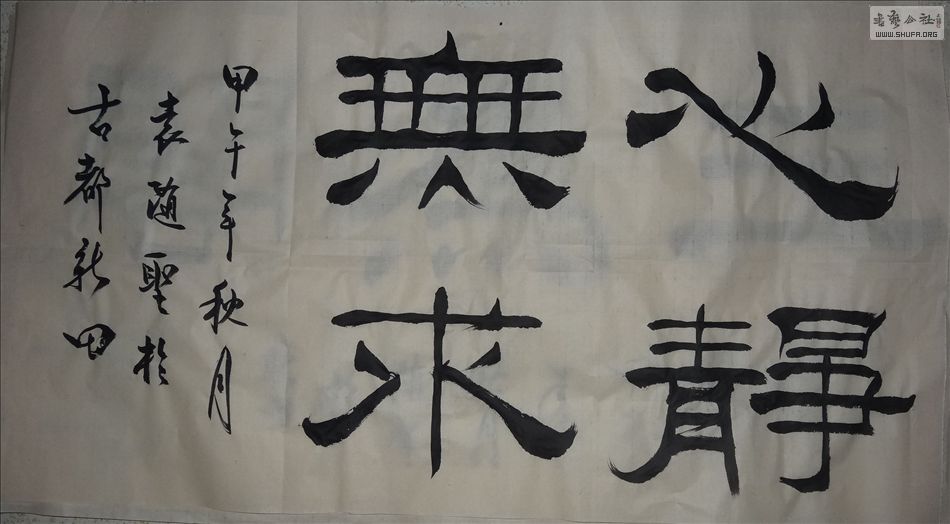 心靜
無求
甲午年秋月
袁随聖於
古都新田
书艺公社
WWW.SHUFA.ORG